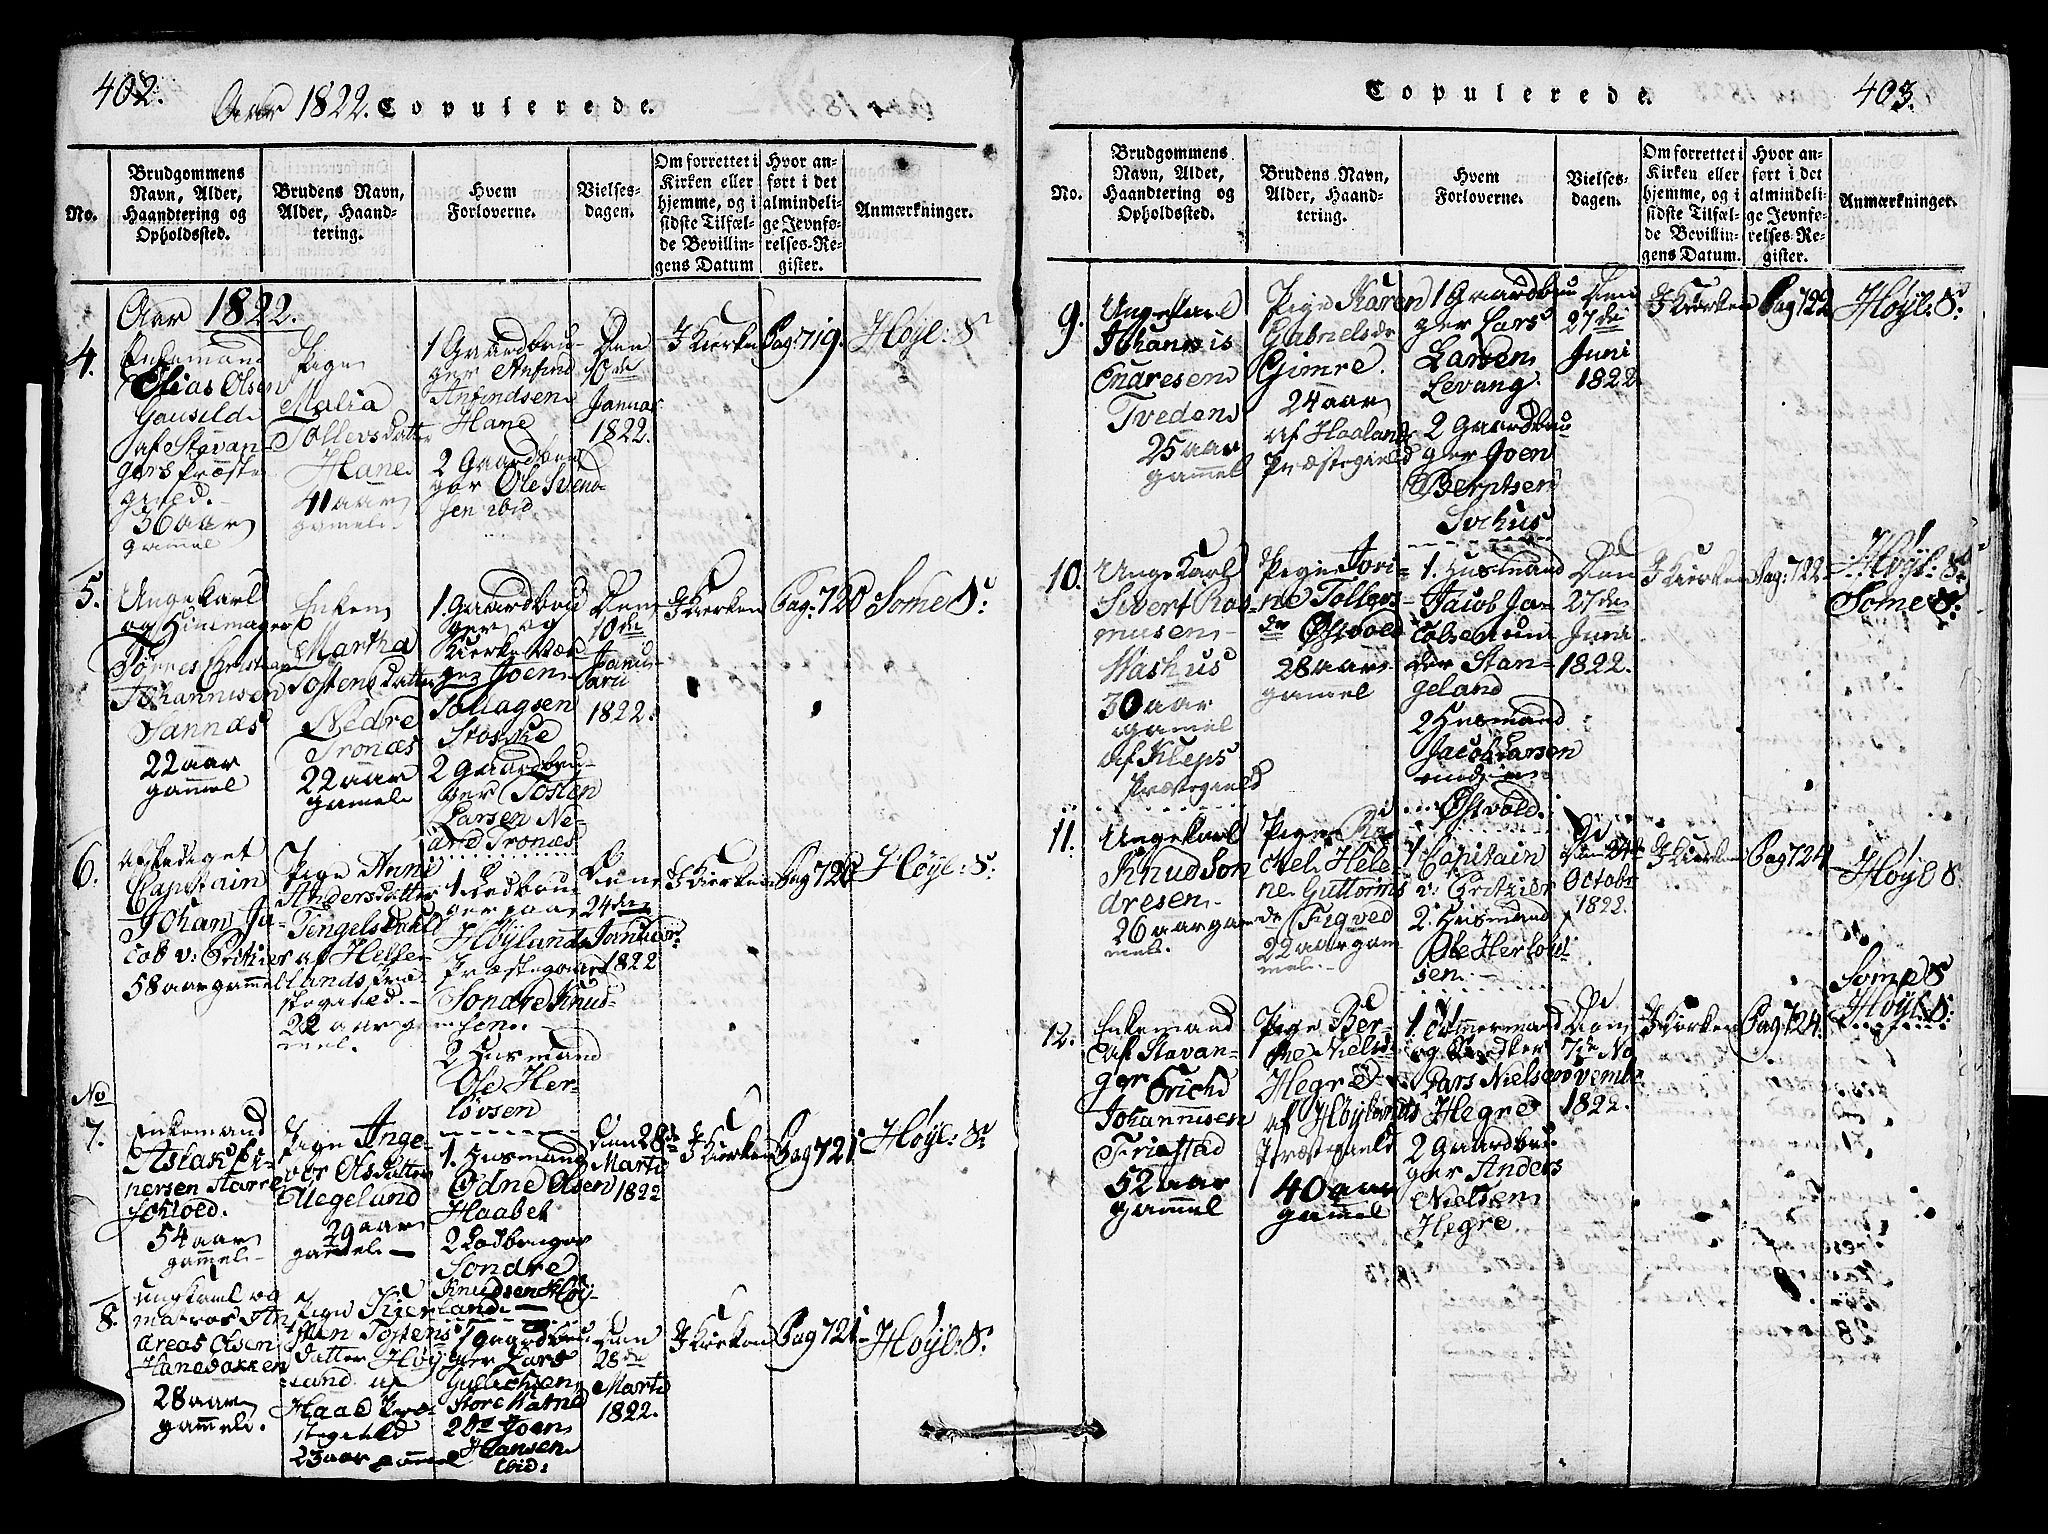 402.
Aar 1822. Copulerede.
No.
Brudgommens
Navn, Alder,
Haandtering og
Opholdssted.
Brudens Navn,
Alder, Haand-
tering.
Hvem
Forloverne.
Vielses-
dagen.
Om forrettet i
Kirken eller
hjemme, og i
sidste Tilfæl-
de Bevillin-
gens Datum
Hvor an-
ført i det
almindeli-
ge Jevnfø-
relses-Re-
gister.
Anmærkninger.
Aar 1822.
4.
Enkemand
Elias Olsen
Gausild
af Stavan-
gers Præste
gield.
36 aar
gammel
Pige
Malia
Tollevsdatter
Hane
41 aar
gamel.
1 Gaardbru-
ger Anfind
Anfindsen
Hane
2 Gaardbru
ger Ole Svend-
sen ibid
Den
10de
Januar
1822.
I Kierken
Pag: 719.
Høyl: S:
5.
Ungekarl
og
Tønnes Christian
Johannesen
Sannæs
22 aar
gammel
Enken
Martha
Tostensdatter
Nedre
Tronæs
22 aar
gamel
1. Gaardbru
ger og
Kierke Væ-
ger Joen
Tollagsen
Stokke
2 Gaardbru-
ger Tosten
Larsen Ne-
dre Tronæs
Den
10de
Janu-
arii
1822.
I Kierken
Pag: 720
Some S:
6.
afskediget
Capitain
Johan Ja-
cob v: Critzier
58 aar gammel
Pige Anni
Andersdatter
Tengelsdahl
af Helle-
lands Præ-
stegield.
22 aar gam
mel.
1. Ledbru
ger paa
Høylunds
Præstegaard
Søndre Knud-
sen.
2 Husmand
Ole Her-
løvsen
Den
24de
Januar:
1822
I Kierken
Pag 720
Høyl: S:
No
7.
Enkemand
Aslak Es-
persen Starre
Johoed.
54 aar
gammel
Pige Ange-
bor Olsdatter
Uegeland
29 aar
gamel
1. Husmand
Odne Olsen
Haabet
2 Lodbruger
Søndre
Knudsen Høy-
land
Den 28de
Marti
1822
I Kierken
Pag 721
Høyl: S:
8.
ungkarl og
matros An
dreas Olsen
Hanebakken
28 aar
gammel.
Pige Kier-
sten Tostens
datter Høy
land af
Haae Præ-
stegield
23 aar gammel
1 Gaardbru
ger Lars
Gulichsen
Store Ratne
2de Joen
Hansen
ibid:
Den
28de
Marti
1822.
I Kierken
Pag 721
Høyl: S:
Copulerede.
403.
No.
Brudgommens
Navn, Alder,
Haandtering og
Opholdssted.
Brudens Navn,
Alder, Haand-
tering.
Hvem
Forloverne.
Vielses-
dagen.
Om forrettet i
Kirken eller
hjemme, og i
sidste Tilfæl-
de Bevillin-
gens Datum.
Hvor an-
ført i det
almindeli-
ge Jevnfø-
relses-Re-
gister.
Anmærkninger.
9.
Ungekarl
Johannis
Endresen
Tveden
25 aar
gammel
Pige Karen
Gabrielsdr
Gimre.
24 aar
af Haalands
Præstegield
1 Gaardbru
ger Lars
Larsen
Levang.
2 Gaardbru
ger Joen
Berntsen
Sørhus
Den
27de
Juni
1822
I Kierken
Pag 722
Høyl: S:
10.
Unge Karl
Sivert Ras-
musen
Washus
30 aar
gamel
af Kleps
Præstegield
Pige Jori-
ne Tollevs-
dr Østvold
28 aar
gamel
1. Husmand
Jacob Ja-
cobsen un-
der Stan-
geland
2 Husmand
Jacob Larsen
under
Østvold.
Den
27de
Juni
1822.
I Kierken
Pag: 722
Høyl: S:
Some S:
11.
Ungekarl
Knud Son
dresen.
26 aar gam
mel.
Pige Ra
chel Hele-
ne Guttorms
dr Figved
22 aar gam
mel.
1 Capitain
v: Critzier
2. Husmand
Ole Herlou-
sen.
Den 24de
Octobr
1822.
I Kierken
Pag 724
Høyl S
12.
Enkemand
af Stavan-
ger Erich
Johannesen
Friestad
52 aar
gammel
Pige Ber-
the Nielsdr
Hegre
af Høylands
Præstegield
40 aar
gammel
1. Tømmermand
og Snedker
Lars Nielsen
Hegre
2 Gaardbru-
ger Anders
Nielsen
Hegre.
Den
7de No
vembr
1822.
I Kierken
Pag: 724.
Some S
Høyl: S: